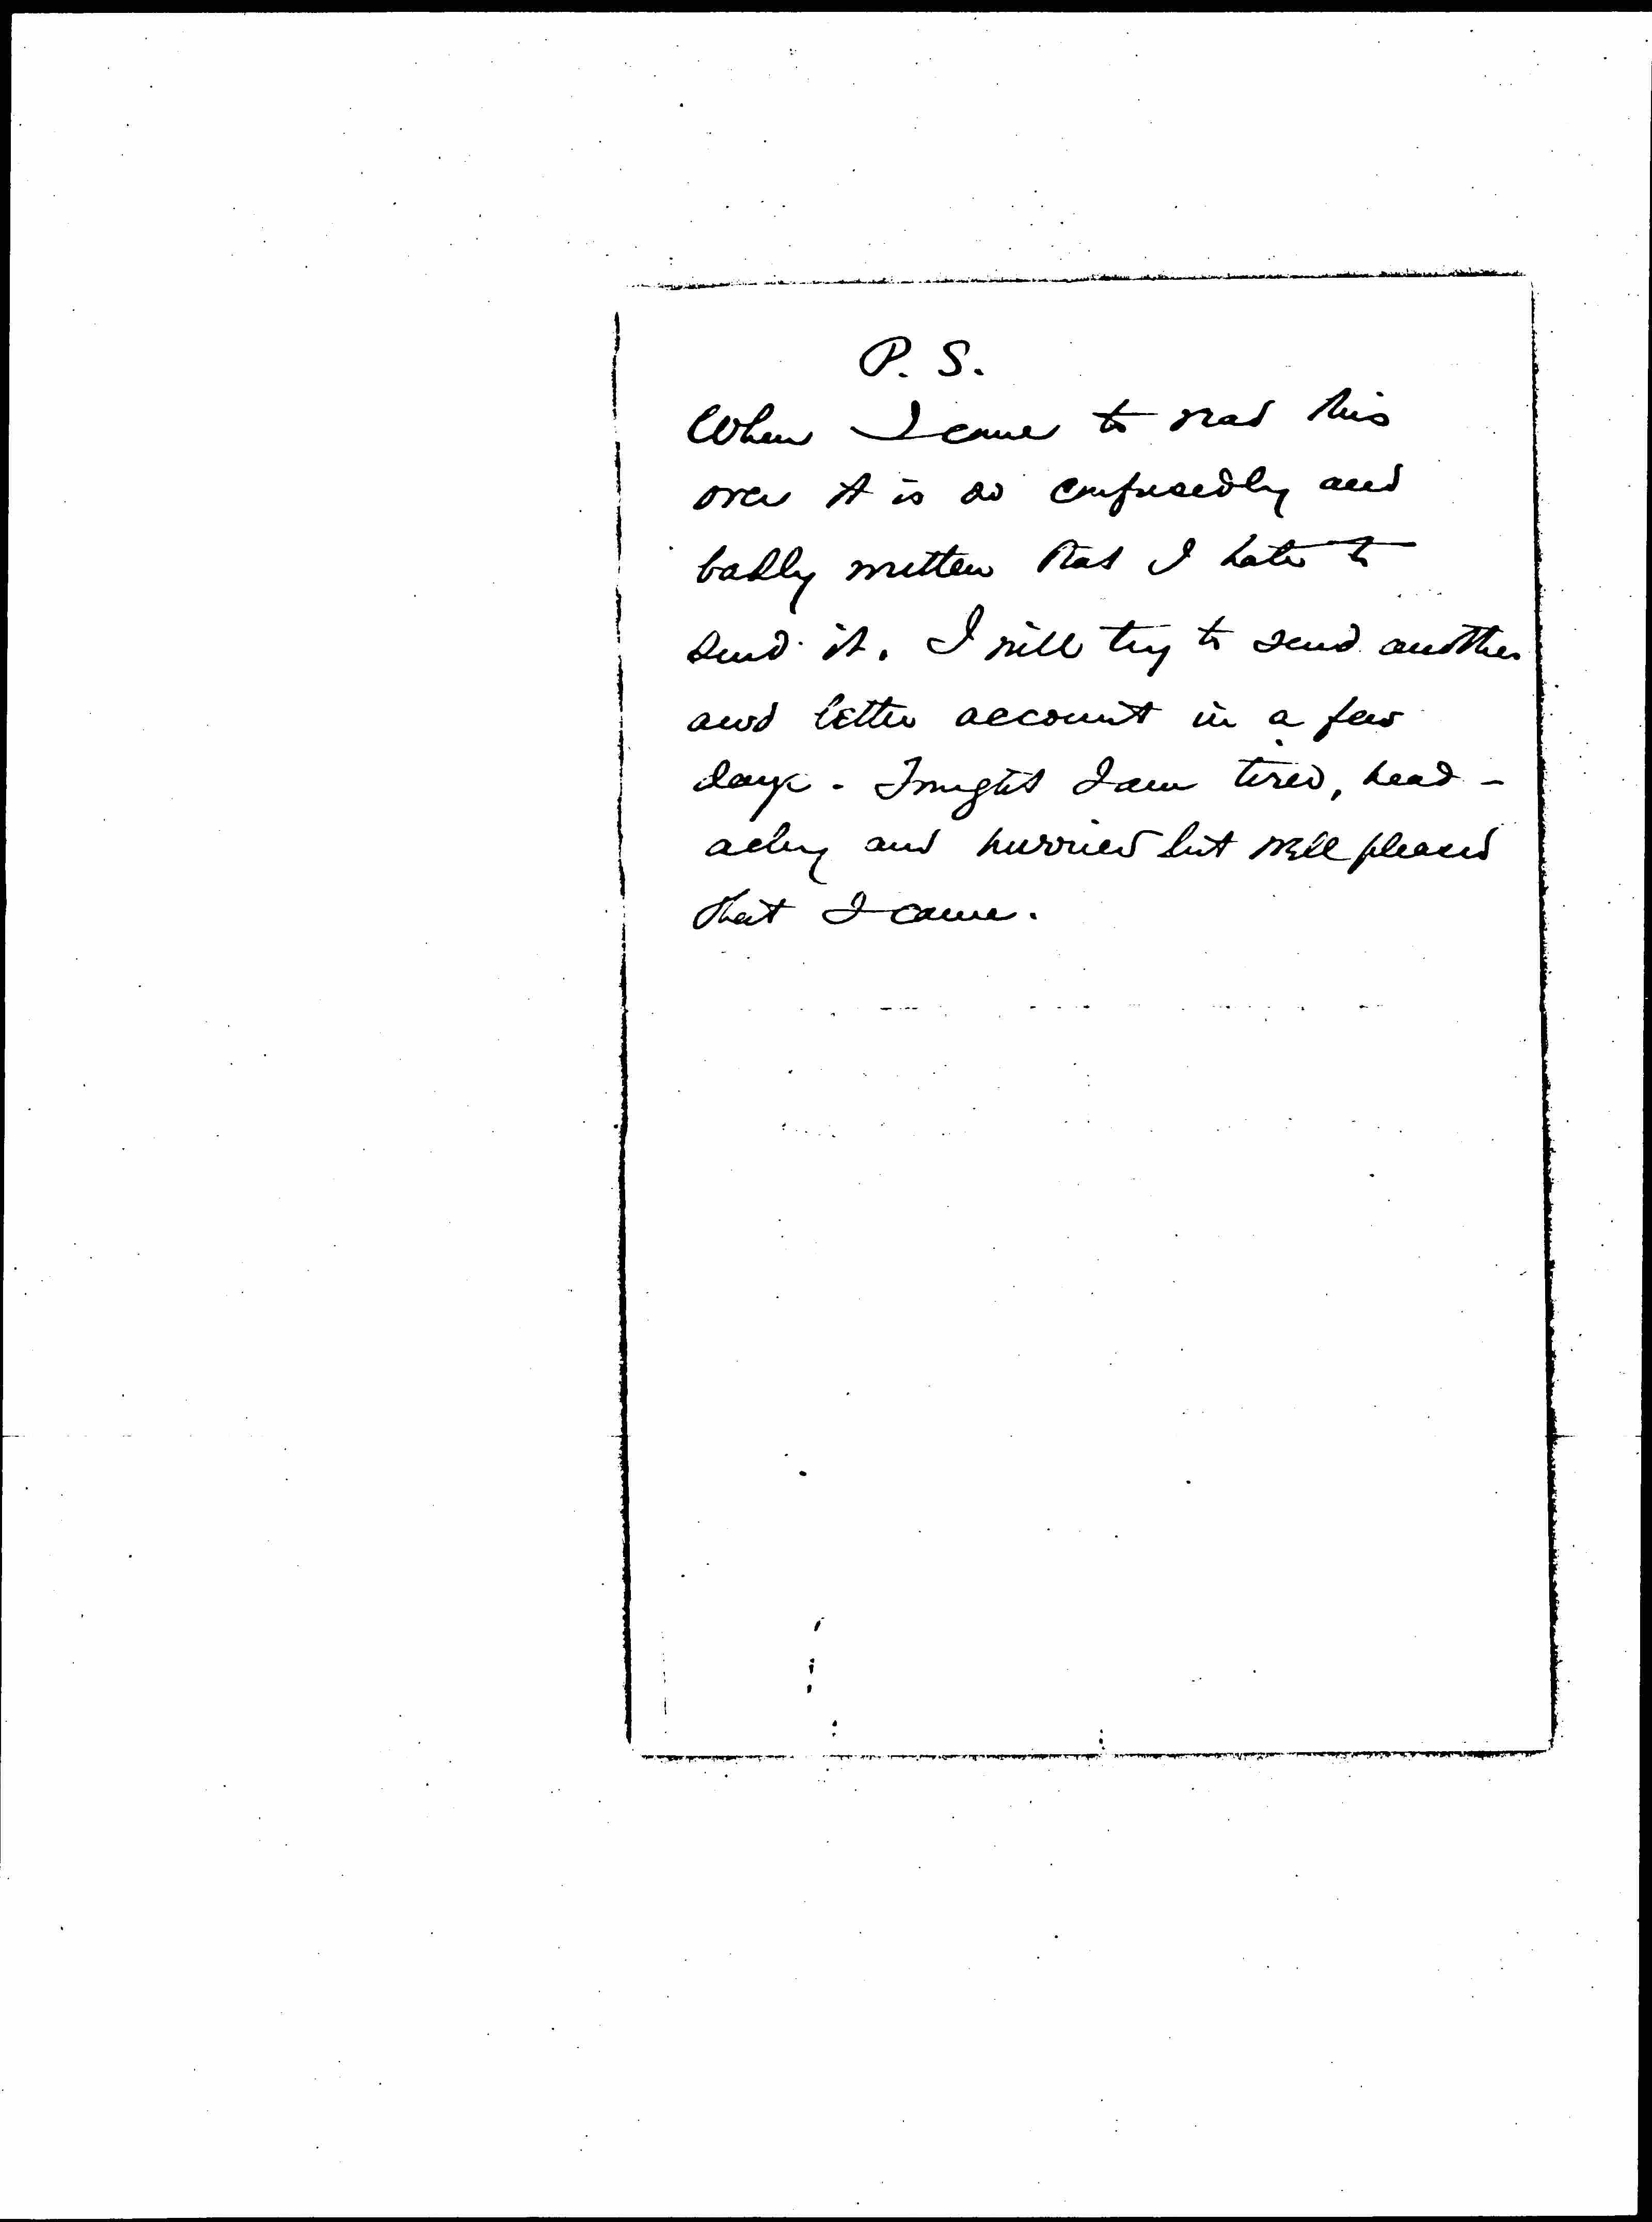 P. S.
When I came to read this
over it is so confusedly and
badly written that I hate to
send it. I will try to send another
and better account in a few
days. Tonight I am tired, head-
achy and hurried but well pleased
that I came.